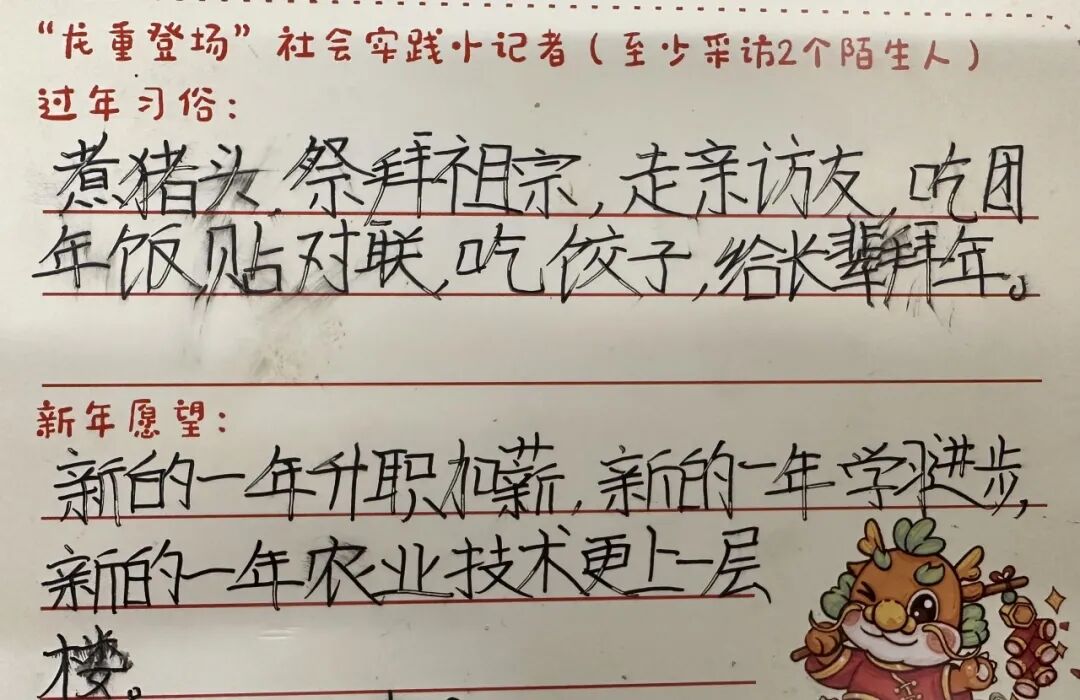 “龙重登场”社会实践小记者(至少采访2个陌生人)
过年习俗:
煮猪头,祭拜祖宗,走亲访友,吃团
年饭,贴对联,吃饺子,给长辈拜年。
新年愿望:
新的一年升职加薪,新的一年学习进步,
新的一年农业技术更上一层
楼。